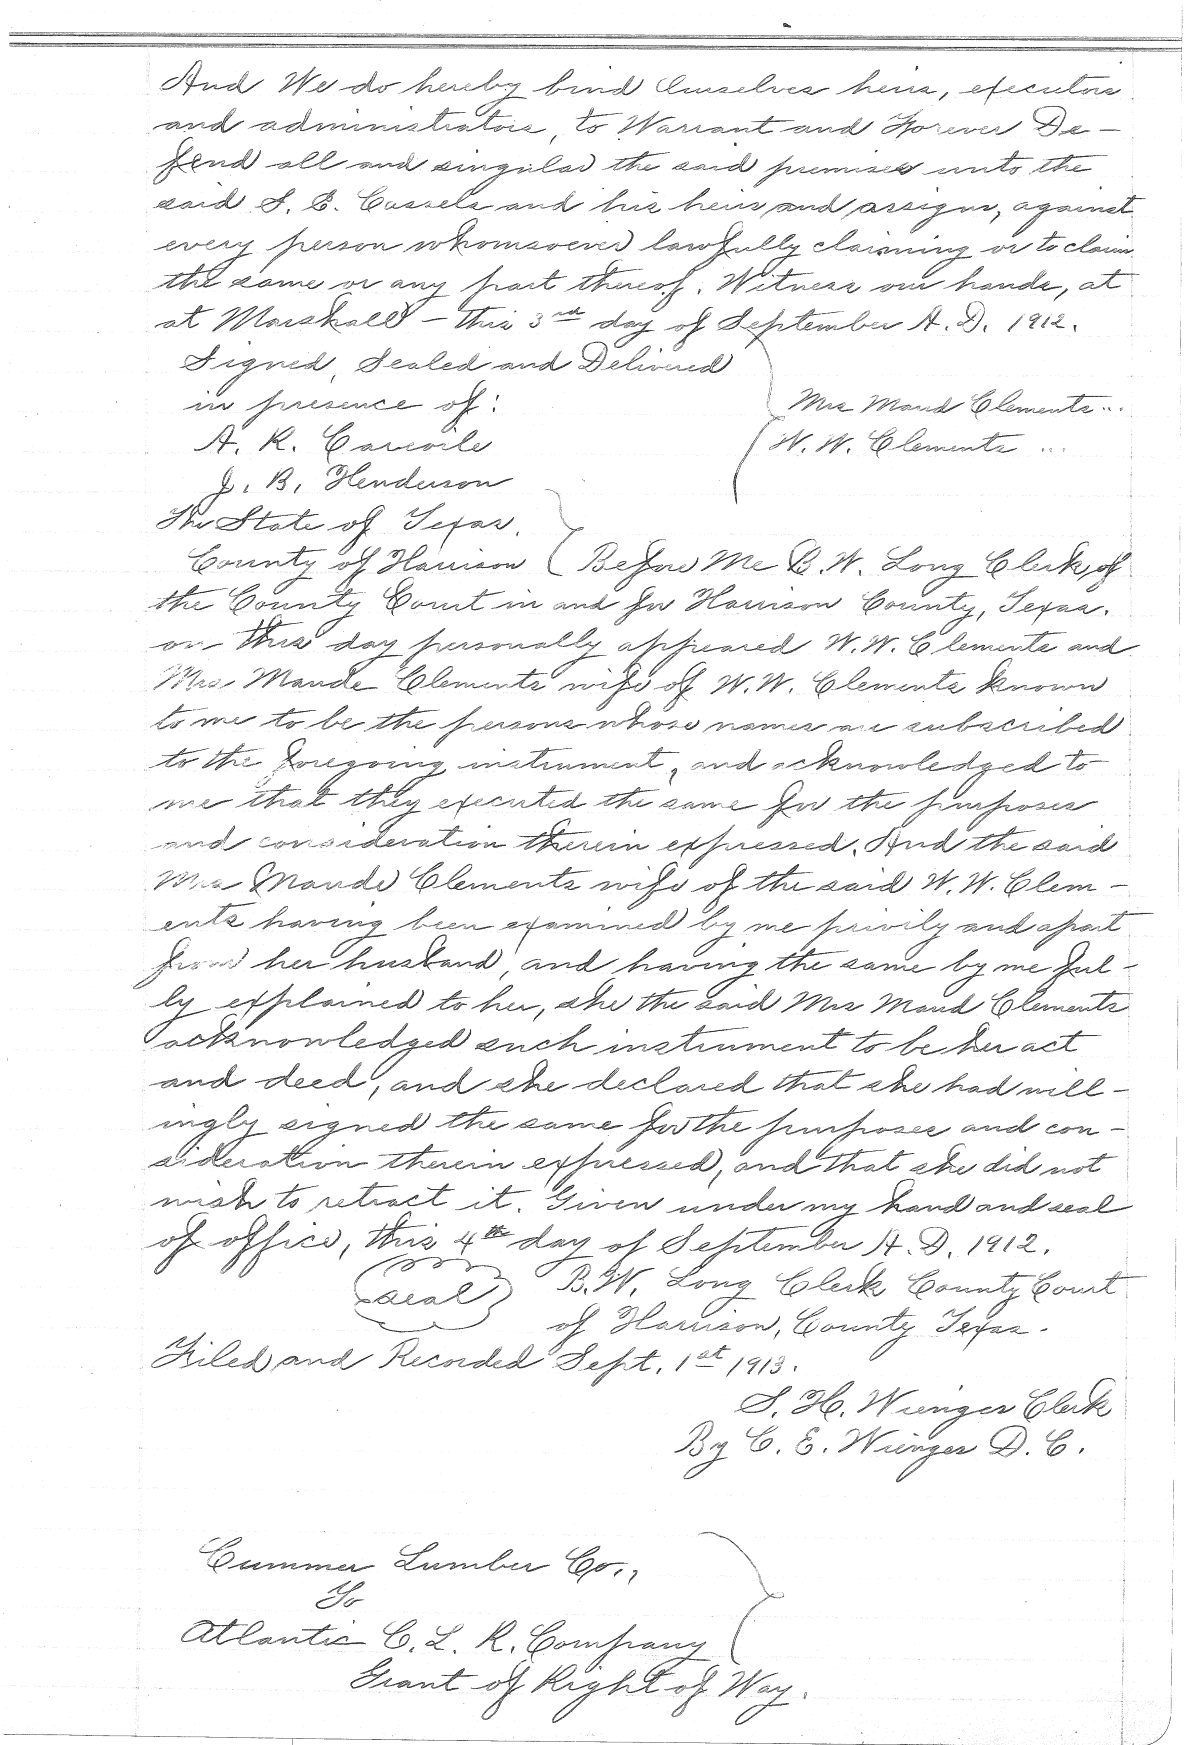 And We do hereby bind Ourselves heirs, executors
and administrators, to Warrant and Forever De-
fend all and singular the said premises unto the
said S. E. Cassels and his heirs and assigns, against
every person whomsoever lawfully claiming or to claim
the same or any part thereof. Witness our hands, at
at Marshall - this 3rd day of September A. D. 1912.
Signed, Sealed and Delivered
in presence of:
Mrs Maud Clements...
A. R.
W. W. Clements ...
J. B. Henderson
The State of Texas.
County of Harrison ( Before Me B. W. Long Clerk of
the County Court in and for Harrison County, Texas.
on this day personally appeared W. W. Clements and
Mrs Maude Clements wife of W. W. Clements known
to me to be the persons whose names are subscribed
to the foregoing instrument, and acknowledged to
me that they executed the same for the purposes
and consideration therein expressed. And the said
Mrs Maude Clements wife of the said W. W. Clem-
ents having been examined by me privily and apart
from her husband, and having the same by me ful-
ly explained to her, she the said Mrs Maud Clements
acknowledged such instrument to be her act
and deed, and she declared that she had will-
ingly signed the same for the purposes and con-
sideration therein expressed, and that she did not
wish to retract it. Given under my hand and seal
of office, this 4th day of September A. D. 1912.
seal
B. W. Long Clerk County Court
of Harrison, County Texas.
Filed and Recorded Sept. 1st 1913.
S. H. Wienges Clerk
By C. E. Wienges D. C.
Cummer Lumber Co.,
To
Atlantic C. L. R. Company
Grant of Right of Way.